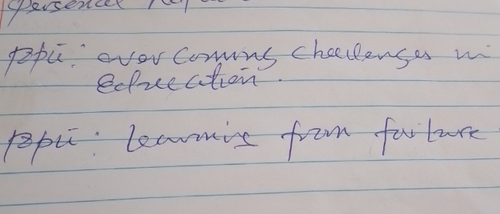 Personal
ppii: overcoming challenges in
Education.
ppii: Learning from failure